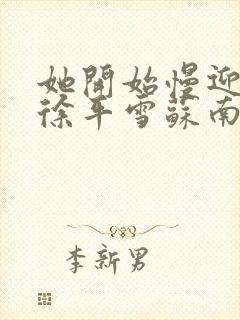 她開始慢迎
徐平雪蘇南
李新男